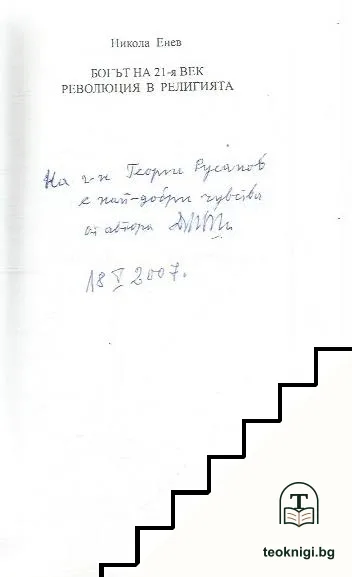 Никола Енев
БОГЪТ НА 21-я ВЕК
РЕВОЛЮЦИЯ В РЕЛИГИЯТА
На г-н Георги Русанов
с най-добри чувства
от автора
18 V 2007.
T
teoknigi.bg